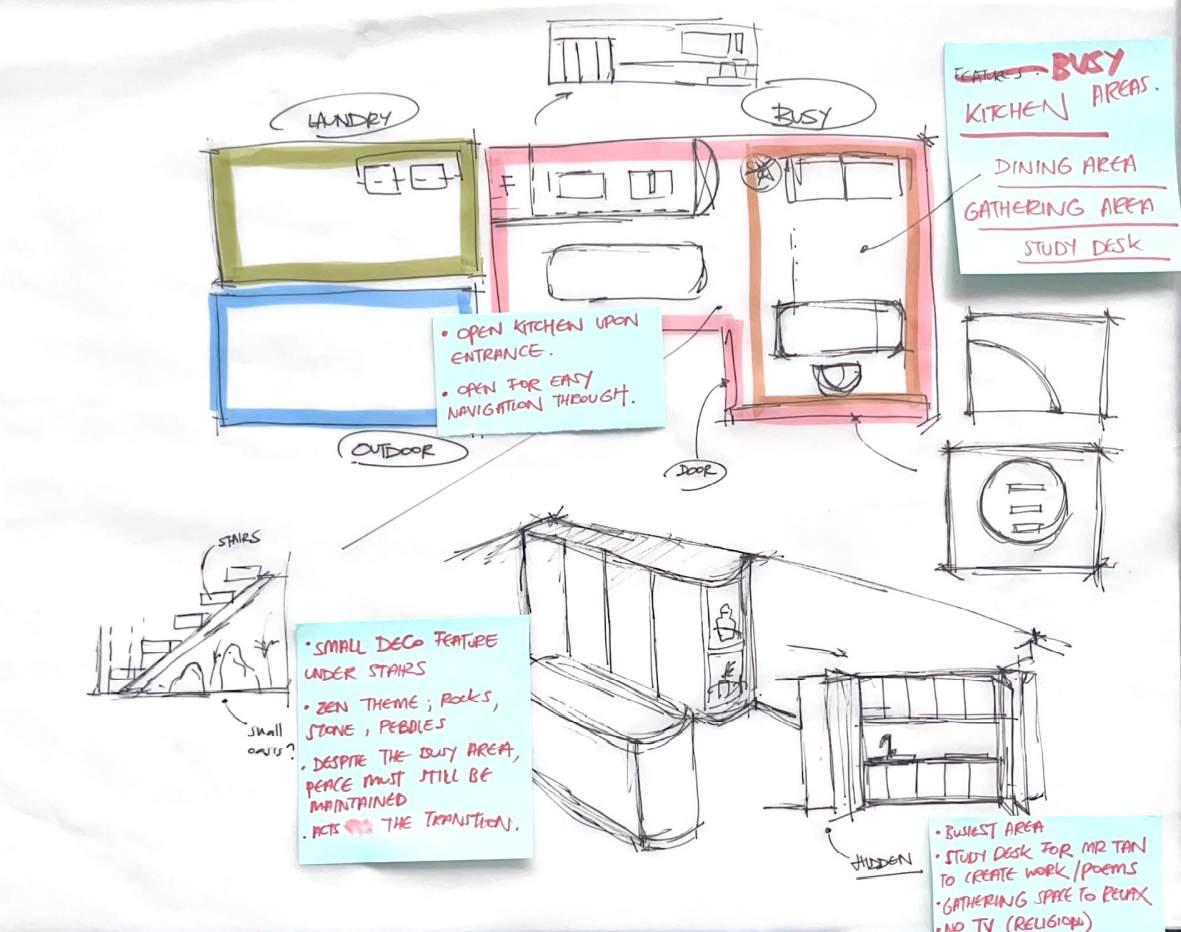 LAUNDRY
BUSY
FEATURES: BUSY
KITCHEN AREAS.
DINING AREA
GATHERING AREA
STUDY DESK
• OPEN KITCHEN UPON
ENTRANCE.
• OPEN FOR EASY
NAVIGATION THROUGH.
OUTDOOR
DOOR
STAIRS
small
oasis?
• SMALL DECO FEATURE
UNDER STAIRS
• ZEN THEME; ROCKS,
STONE, PEBBLES
• DESPITE THE BUSY AREA,
PEACE MUST STILL BE
MAINTAINED
• ACTS THE TRANSITION.
HIDDEN
• BUSIEST AREA
• STUDY DESK FOR MR TAN
TO CREATE WORK/POEMS
• GATHERING SPACE TO RELAX
• NO TV (RELIGION)